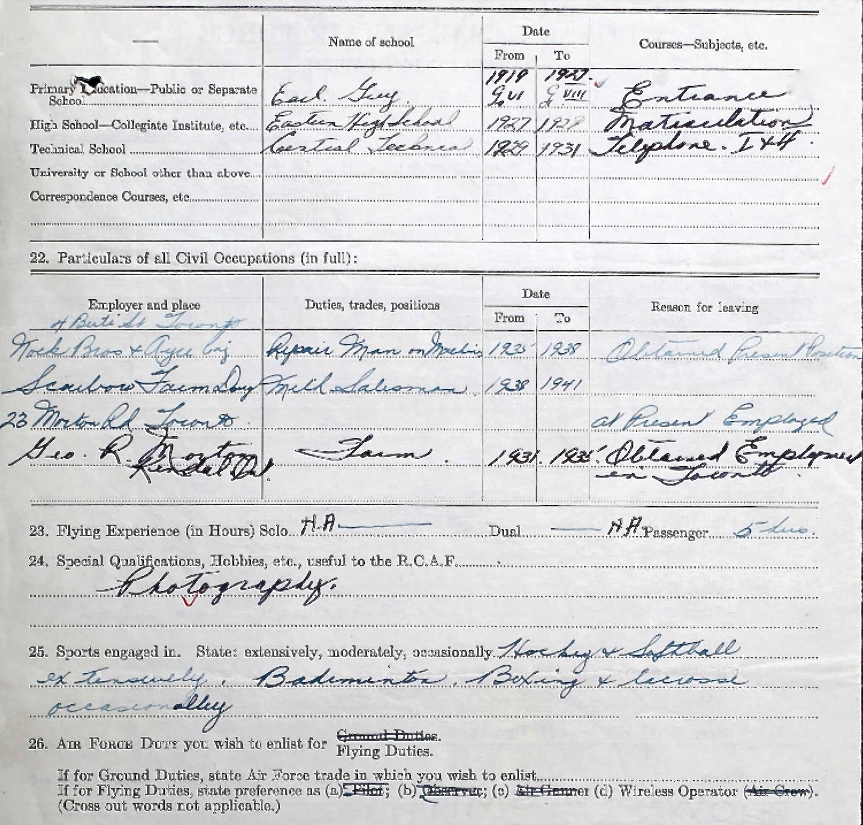 Name of school
Date
From To
Courses—Subjects, etc.
Primary Education—Public or Separate School
Earl Grey
1919 1927
VI VIII
Entrance
High School—Collegiate Institute, etc.
Eastern High School
1927 1929
Matriculation
Technical School
Central Technical
1929 1931
Telephone. I & II
University or School other than above
Correspondence Courses, etc.
22. Particulars of all Civil Occupations (in full):
Employer and place
Duties, trades, positions
Date
From To
Reason for leaving
St Toronto
Bros &
Repair Man on
1935 1938
Obtained Present Position
Farm
Milk Salesman
1938 1941
23 Morton Rd Toronto
at Present Employed
Geo. R. Morton
Kendal Ont.
Farm
1931. 1935
Obtained Employment
in Toronto
23. Flying Experience (in Hours) Solo N.A Dual N A Passenger 5 hrs.
24. Special Qualifications, Hobbies, etc., useful to the R.C.A.F.
Photography.
25. Sports engaged in. State: extensively, moderately, occasionally. Hockey & Softball
extensively. Badminton, Boxing & lacrosse
occasionalley
26. AIR FORCE DUTY you wish to enlist for Ground Duties.
Flying Duties.
If for Ground Duties, state Air Force trade in which you wish to enlist
If for Flying Duties, state preference as (a) Pilot; (b) Observer; (c) Air Gunner (d) Wireless Operator (Air Crew).
(Cross out words not applicable.)